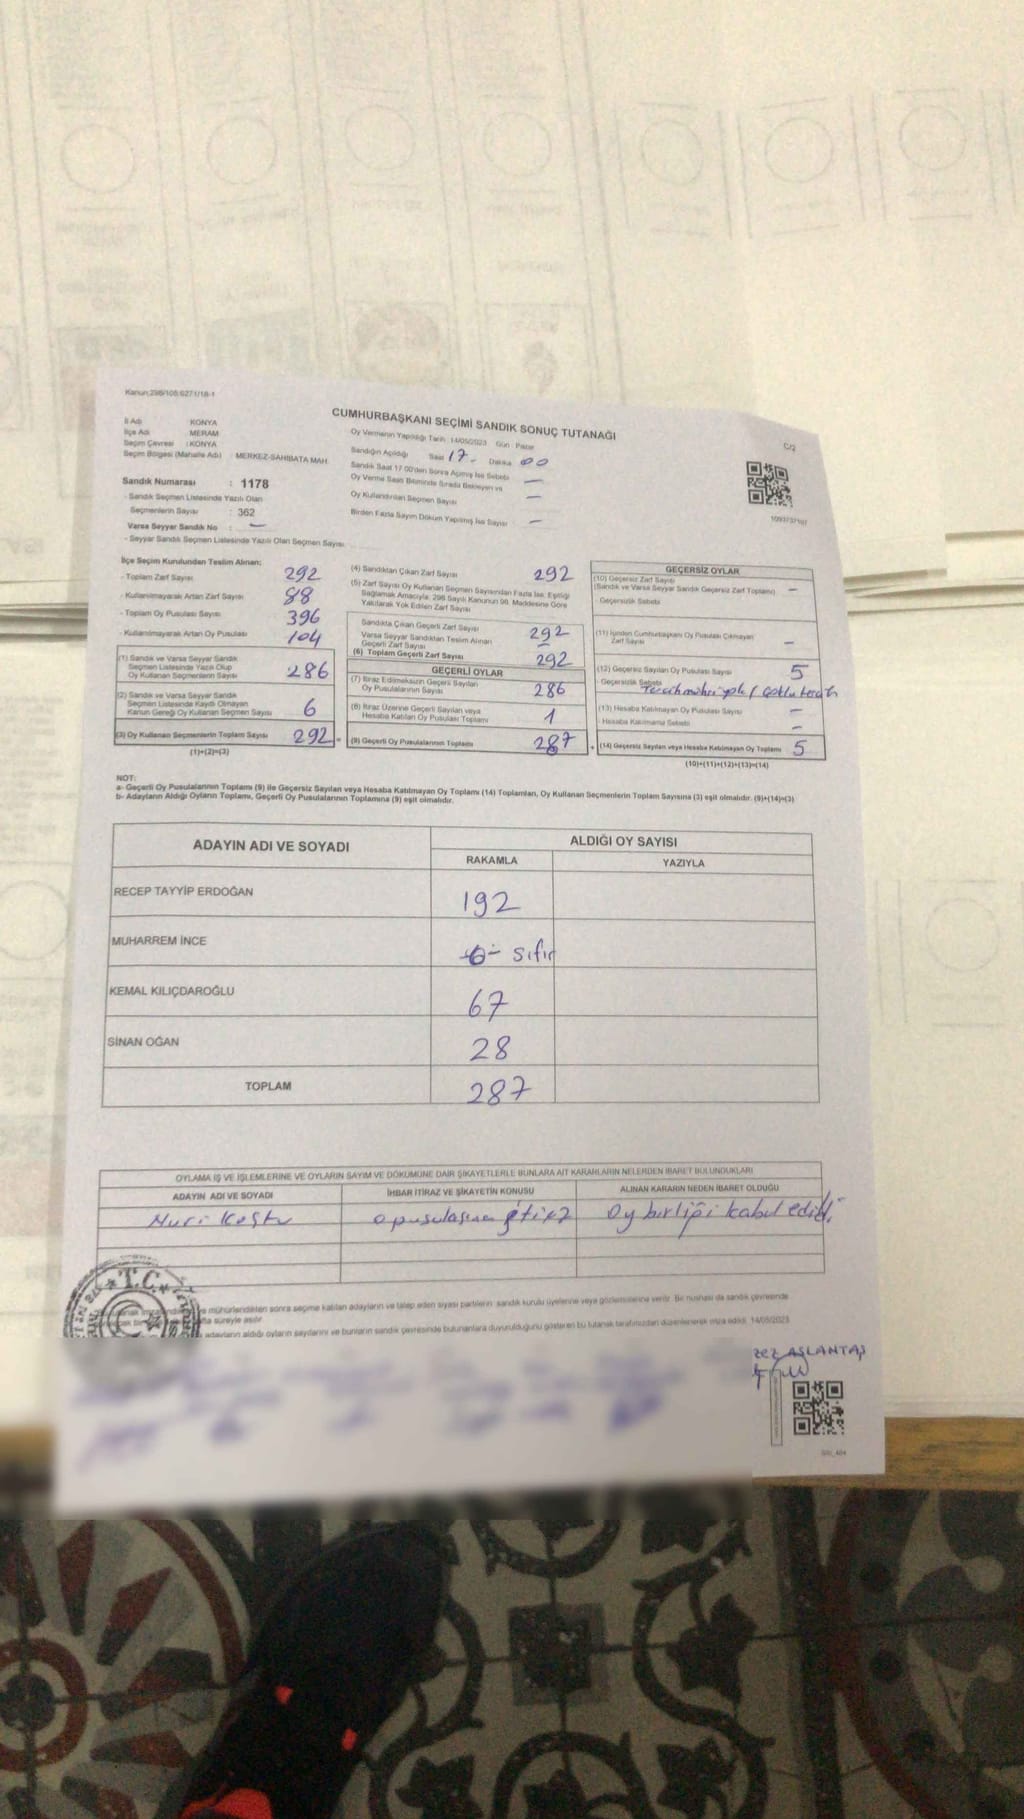 Kanun:298/105;6271/18-1
CUMHURBAŞKANI SEÇİMİ SANDIK SONUÇ TUTANAĞI
C/2
İl Adı KONYA
İlçe Adı MERAM
Seçim Çevresi : KONYA
Seçim Bölgesi (Mahalle Adı) : MERKEZ-SAHİBATA MAH.
Sandık Numarası : 1178
- Sandık Seçmen Listesinde Yazılı Olan
Seçmenlerin Sayısı : 362
Varsa Seyyar Sandık No : —
- Seyyar Sandık Seçmen Listesinde Yazılı Olan Seçmen Sayısı
Oy Vermenin Yapıldığı Tarih : 14/05/2023 Gün : Pazar
Sandığın Açıldığı Saat 17 - Dakika 00
Sandık Saat 17.00'den Sonra Açılmış İse Sebebi —
Oy Verme Saati Bitiminde Sırada Bekleyen ve
Oy Kullandırılan Seçmen Sayısı —
Birden Fazla Sayım Döküm Yapılmış İse Sayısı —
1093737197
İlçe Seçim Kurulundan Teslim Alınan:
- Toplam Zarf Sayısı 292
- Kullanılmayarak Artan Zarf Sayısı 88
- Toplam Oy Pusulası Sayısı 396
- Kullanılmayarak Artan Oy Pusulası 104
(1) Sandık ve Varsa Seyyar Sandık
Seçmen Listesinde Yazılı Olup
Oy Kullanan Seçmenlerin Sayısı 286
(2) Sandık ve Varsa Seyyar Sandık
Seçmen Listesinde Kaydı Olmayan
Kanun Gereği Oy Kullanan Seçmen Sayısı 6
(3) Oy Kullanan Seçmenlerin Toplam Sayısı 292 =
(1)+(2)=(3)
(4) Sandıktan Çıkan Zarf Sayısı 292
(5) Zarf Sayısı Oy Kullanan Seçmen Sayısından Fazla İse, Eşitliği
Sağlamak Amacıyla, 298 Sayılı Kanunun 98. Maddesine Göre
Yakılarak Yok Edilen Zarf Sayısı
Sandıkta Çıkan Geçerli Zarf Sayısı 292
Varsa Seyyar Sandıktan Teslim Alınan
Geçerli Zarf Sayısı —
(6) Toplam Geçerli Zarf Sayısı 292
GEÇERLİ OYLAR
(7) İtiraz Edilmeksizin Geçerli Sayılan
Oy Pusulalarının Sayısı 286
(8) İtiraz Üzerine Geçerli Sayılan veya
Hesaba Katılan Oy Pusulası Toplamı 1
(9) Geçerli Oy Pusulalarının Toplamı 287 +
GEÇERSİZ OYLAR
(10) Geçersiz Zarf Sayısı
(Sandık ve Varsa Seyyar Sandık Geçersiz Zarf Toplamı) —
- Geçersizlik Sebebi
(11) İçinden Cumhurbaşkanı Oy Pusulası Çıkmayan
Zarf Sayısı —
(12) Geçersiz Sayılan Oy Pusulası Sayısı 5
- Geçersizlik Sebebi Tercih mührü yok / Çoklu tercih
(13) Hesaba Katılmayan Oy Pusulası Sayısı —
- Hesaba Katılmama Sebebi —
(14) Geçersiz Sayılan veya Hesaba Katılmayan Oy Toplamı 5
(10)+(11)+(12)+(13)=(14)
NOT:
a- Geçerli Oy Pusulalarının Toplamı (9) ile Geçersiz Sayılan veya Hesaba Katılmayan Oy Toplamı (14) Toplamları, Oy Kullanan Seçmenlerin Toplam Sayısına (3) eşit olmalıdır. (9)+(14)=(3)
b- Adayların Aldığı Oyların Toplamı, Geçerli Oy Pusulalarının Toplamına (9) eşit olmalıdır.
ADAYIN ADI VE SOYADI
ALDIĞI OY SAYISI
RAKAMLA YAZIYLA
RECEP TAYYİP ERDOĞAN 192
MUHARREM İNCE -0- sıfır
KEMAL KILIÇDAROĞLU 67
SİNAN OĞAN 28
TOPLAM 287
OYLAMA İŞ VE İŞLEMLERİNE VE OYLARIN SAYIM VE DÖKÜMÜNE DAİR ŞİKAYETLERLE BUNLARA AİT KARARLARIN NELERDEN İBARET BULUNDUKLARI
ADAYIN ADI VE SOYADI İHBAR İTİRAZ VE ŞİKAYETİN KONUSU ALINAN KARARIN NEDEN İBARET OLDUĞU
Nuri Oy birliği kabul edildi
T.C.
mühürlendikten sonra seçime katılan adayların ve talep eden siyasi partilerin sandık kurulu üyelerine veya gözlemcilerine verilir. Bir nüshası da sandık çevresinde
hafta süreyle asılır.
adayların aldığı oyların sayılarını ve bunların sandık çevresinde bulunanlara duyurulduğunu gösteren bu tutanak tarafımızdan düzenlenerek imza edildi. 14/05/2023
ASLANTAŞ